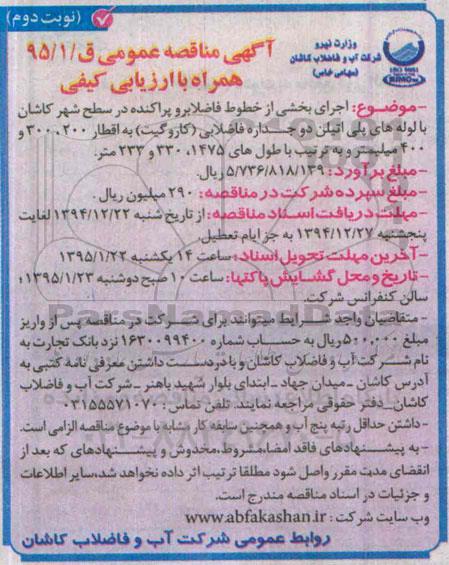 (نوبت دوم)
وزارت نیرو
شرکت آب و فاضلاب کاشان
(سهامی خاص)
آگهی مناقصه عمومی ق/۹۵/۱
همراه با ارزیابی کیفی
-موضوع: اجرای بخشی از خطوط فاضلابرو پراکنده در سطح شهر کاشان
با لوله های پلی اتیلن دو جداره فاضلابی (کاروگیت) به اقطار ۲۰۰، ۳۰۰ و
۴۰۰ میلیمتر و به ترتیب با طول های ۱۴۷۵، ۳۳۰ و ۲۳۳ متر.
-مبلغ برآورد: ۵/۷۳۶/۸۱۸/۱۳۹ ریال.
-مبلغ سپرده شرکت در مناقصه: ۲۹۰ میلیون ریال.
-مهلت دریافت اسناد مناقصه: از تاریخ شنبه ۱۳۹۴/۱۲/۲۲ لغایت
پنجشنبه ۱۳۹۴/۱۲/۲۷ به جز ایام تعطیل.
-آخرین مهلت تحویل اسناد: ساعت ۱۴ یکشنبه ۱۳۹۵/۱/۲۲
-تاریخ و محل گشایش پاکتها: ساعت ۱۰ صبح دوشنبه ۱۳۹۵/۱/۲۳؛
سالن کنفرانس شرکت.
- متقاضیان واجد شرایط میتوانند برای شرکت در مناقصه پس از واریز
مبلغ ۵۰۰،۰۰۰ ریال به حساب شماره ۱۶۳۰۰۹۹۴۰۰ نزد بانک تجارت به
نام شرکت آب و فاضلاب کاشان و با در دست داشتن معرفی نامه کتبی به
آدرس کاشان -میدان جهاد -ابتدای بلوار شهید باهنر -شرکت آب و فاضلاب
کاشان-دفتر حقوقی مراجعه نمایند. تلفن تماس: ۰۳۱۵۵۵۷۱۰۷۰
-داشتن حداقل رتبه پنج آب و همچنین سابقه کار مشابه با موضوع مناقصه الزامی است.
-به پیشنهادهای فاقد امضا،مشروط،مخدوش و پیشنهادهای که بعد از
انقضای مدت مقرر واصل شود مطلقا ترتیب اثر داده نخواهد شد،سایر اطلاعات
و جزئیات در اسناد مناقصه مندرج است.
وب سایت شرکت: www.abfakashan.ir
روابط عمومی شرکت آب و فاضلاب کاشان